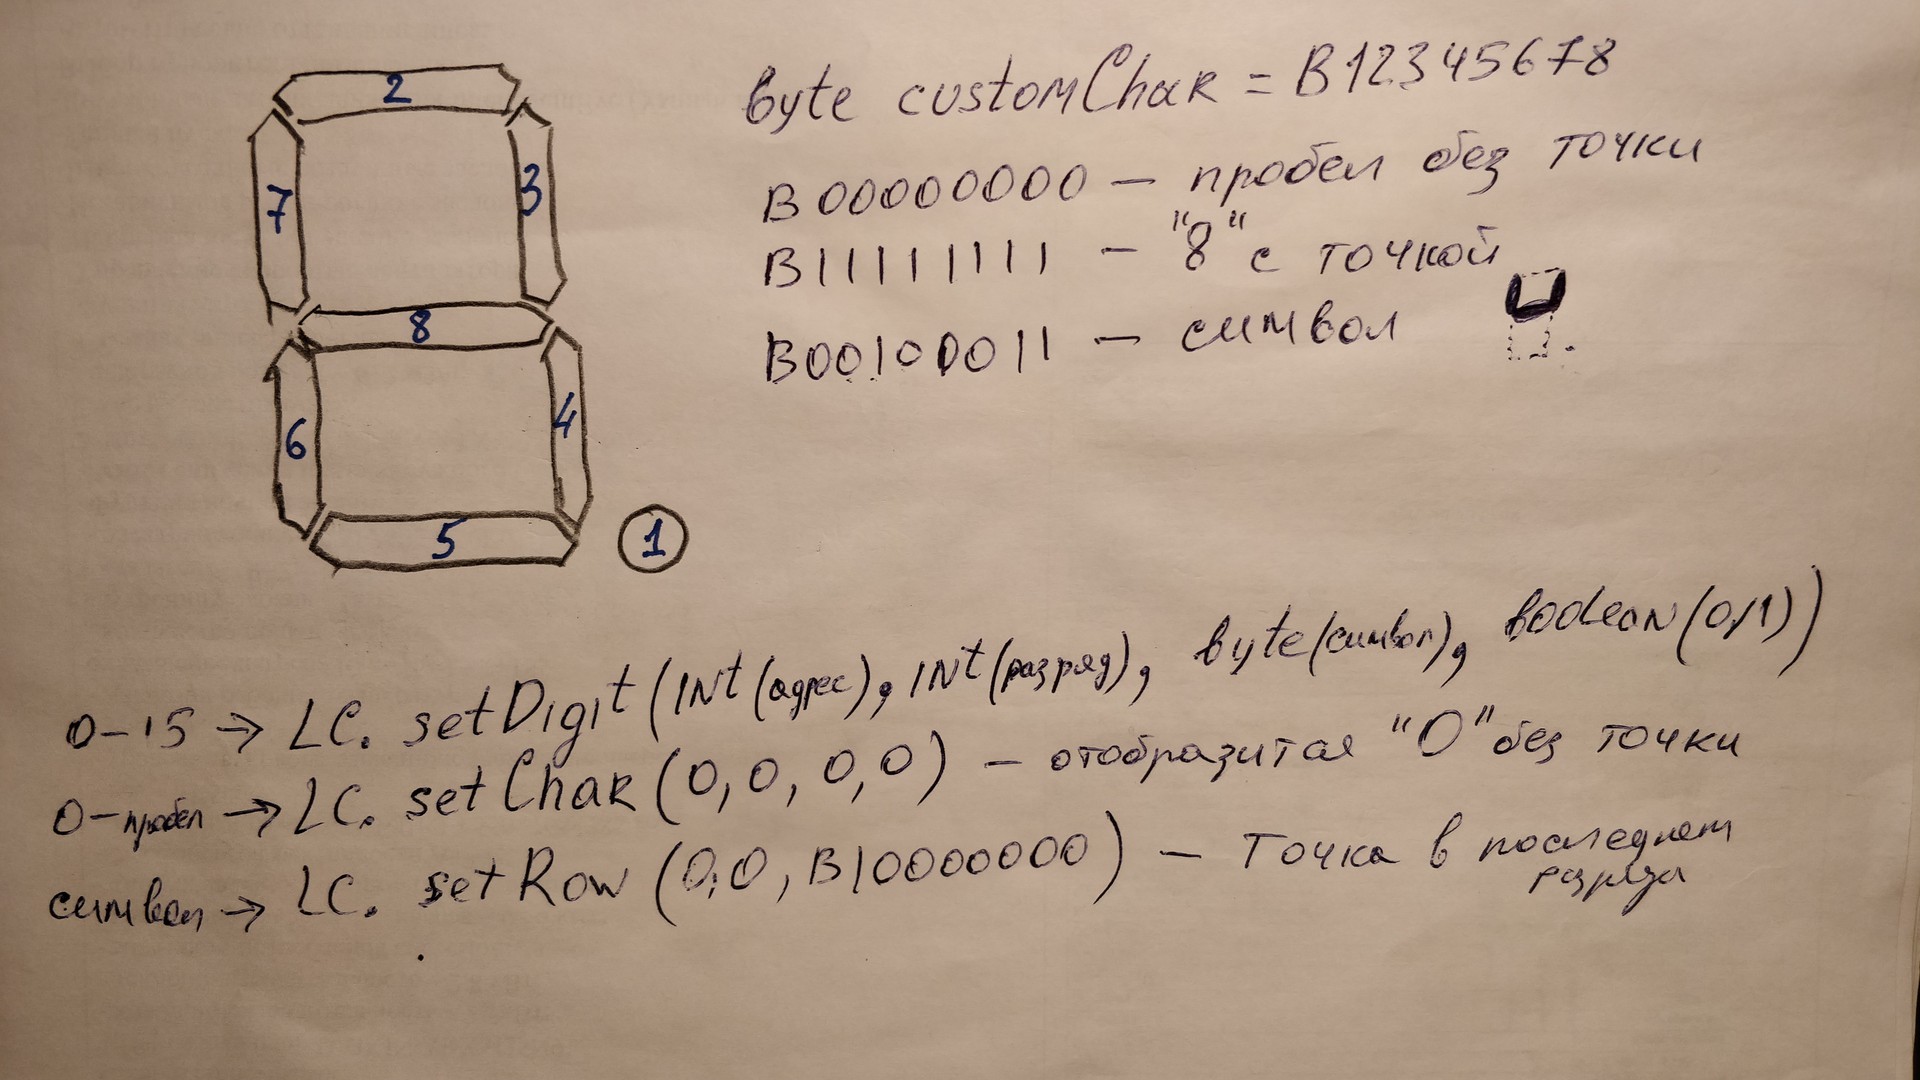 2
7
3
8
6
4
5
1
byte customChar = B12345678
B00000000 — пробел без точки
B11111111 — "8" с точкой
B00100011 — символ
0-15 → LC. setDigit (INt (адрес), INt (разряд), byte (символ), boolean (0/1))
0-пробел → LC. setChar (0, 0, 0, 0) — отобразится "0" без точки
символ → LC. setRow (0,0, B10000000) — Точка в последнем
разряде